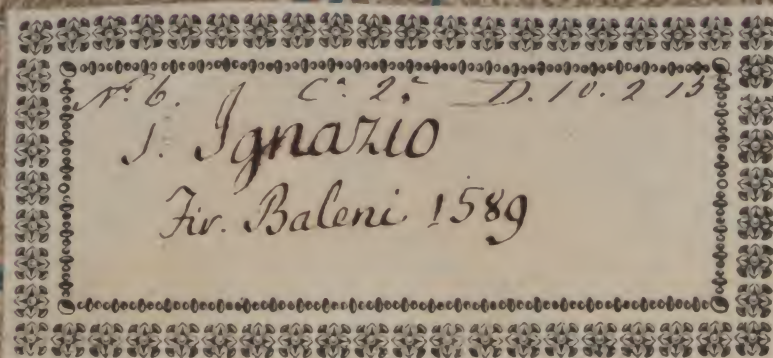 N.º 6. C.ª 2.ª D. 10. 2 15
S. Ignazio
Fir. Baleni 1589